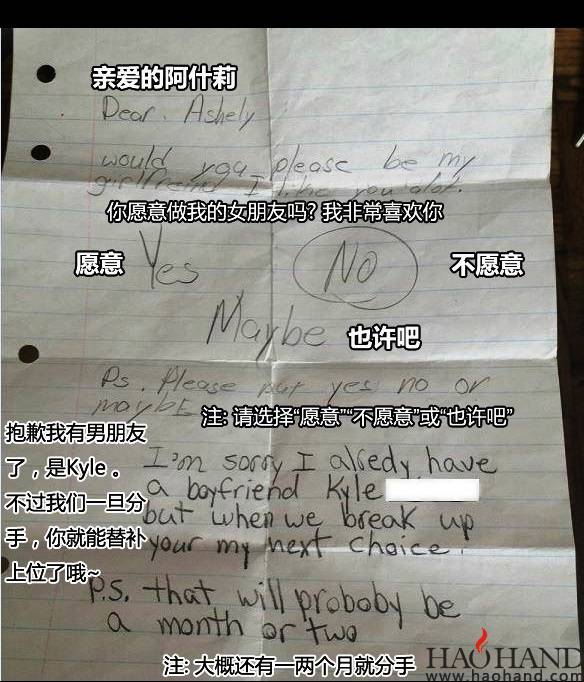 亲爱的阿什莉
Dear. Ashely
would you please be my
girlfriend I like you alot.
你愿意做我的女朋友吗? 我非常喜欢你
愿意 Yes NO 不愿意
Maybe 也许吧
Ps. Please put yes no or
maybe
注: 请选择“愿意”“不愿意”或“也许吧”
抱歉我有男朋友
了，是Kyle 。
不过我们一旦分
手，你就能替补
上位了哦~
I'm sorry I alredy have
a boyfriend Kyle
but when we break up
your my next choice.
P.S. that will proboby be
a month or two
注: 大概还有一两个月就分手
HAOHAND
www.haohand.com